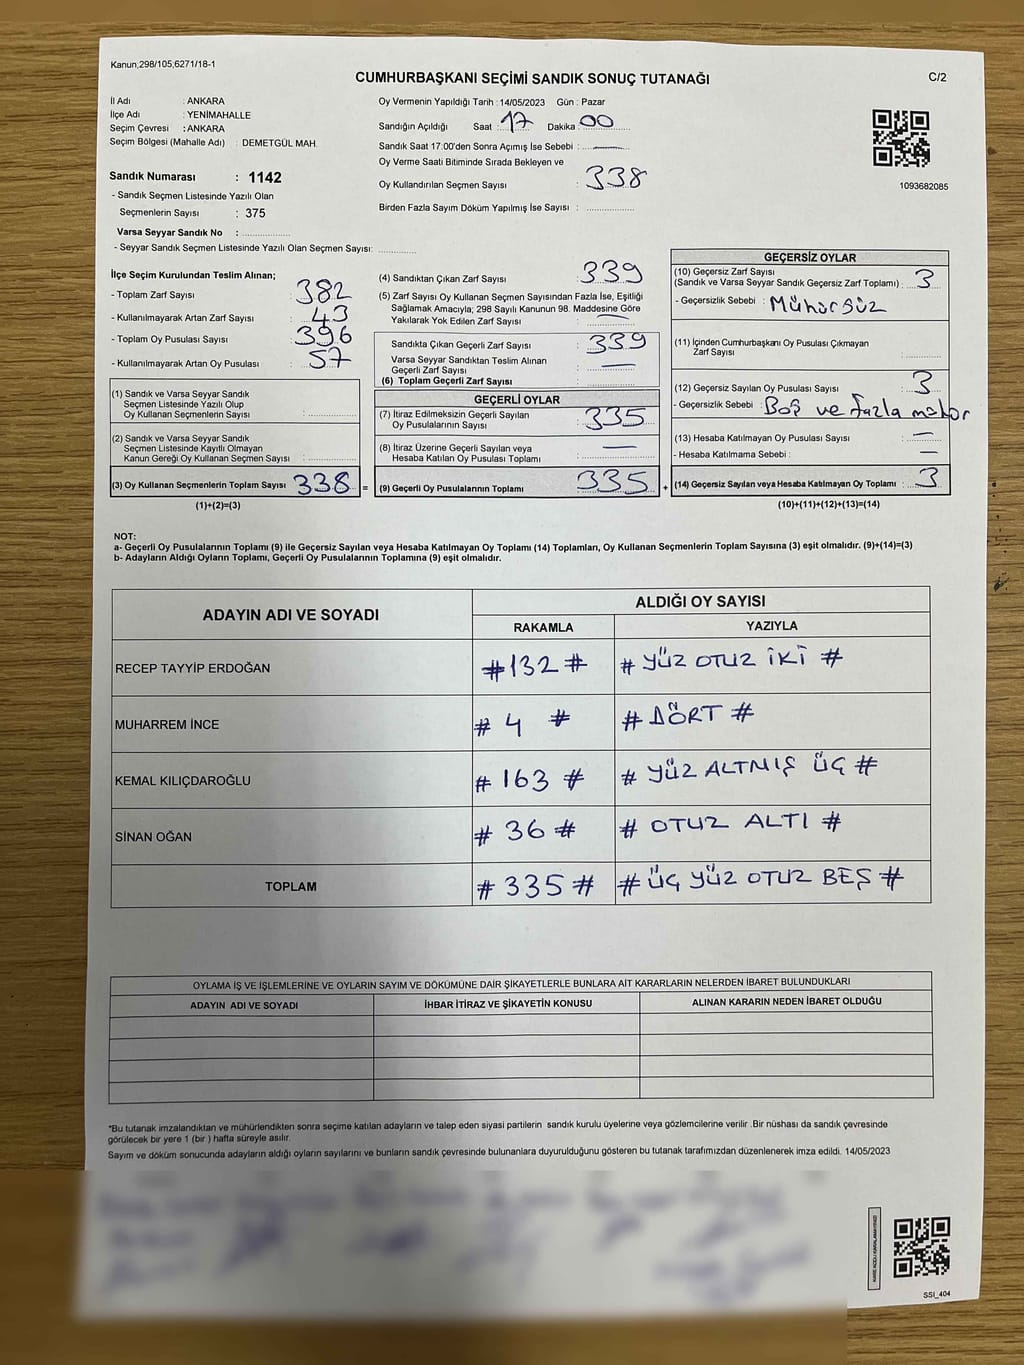 Kanun;298/105;6271/18-1
CUMHURBAŞKANI SEÇİMİ SANDIK SONUÇ TUTANAĞI
C/2
İl Adı : ANKARA
İlçe Adı : YENİMAHALLE
Seçim Çevresi : ANKARA
Seçim Bölgesi (Mahalle Adı) : DEMETGÜL MAH.
Sandık Numarası : 1142
- Sandık Seçmen Listesinde Yazılı Olan
Seçmenlerin Sayısı : 375
Varsa Seyyar Sandık No :
- Seyyar Sandık Seçmen Listesinde Yazılı Olan Seçmen Sayısı:
Oy Vermenin Yapıldığı Tarih : 14/05/2023 Gün : Pazar
Sandığın Açıldığı Saat : 17 Dakika : 00
Sandık Saat 17:00'den Sonra Açımış İse Sebebi : —
Oy Verme Saati Bitiminde Sırada Bekleyen ve
Oy Kullandırılan Seçmen Sayısı : 338
Birden Fazla Sayım Döküm Yapılmış İse Sayısı :
1093682085
İlçe Seçim Kurulundan Teslim Alınan;
- Toplam Zarf Sayısı : 382
- Kullanılmayarak Artan Zarf Sayısı : 43
- Toplam Oy Pusulası Sayısı : 396
- Kullanılmayarak Artan Oy Pusulası : 57
(1) Sandık ve Varsa Seyyar Sandık
Seçmen Listesinde Yazılı Olup
Oy Kullanan Seçmenlerin Sayısı :
(2) Sandık ve Varsa Seyyar Sandık
Seçmen Listesinde Kayıtlı Olmayan
Kanun Gereği Oy Kullanan Seçmen Sayısı :
(3) Oy Kullanan Seçmenlerin Toplam Sayısı : 338 =
(1)+(2)=(3)
(4) Sandıktan Çıkan Zarf Sayısı : 339
(5) Zarf Sayısı Oy Kullanan Seçmen Sayısından Fazla İse, Eşitliği
Sağlamak Amacıyla; 298 Sayılı Kanunun 98. Maddesine Göre
Yakılarak Yok Edilen Zarf Sayısı : —
Sandıkta Çıkan Geçerli Zarf Sayısı : 339
Varsa Seyyar Sandıktan Teslim Alınan
Geçerli Zarf Sayısı : —
(6) Toplam Geçerli Zarf Sayısı :
GEÇERLİ OYLAR
(7) İtiraz Edilmeksizin Geçerli Sayılan
Oy Pusulalarının Sayısı : 335
(8) İtiraz Üzerine Geçerli Sayılan veya
Hesaba Katılan Oy Pusulası Toplamı : —
(9) Geçerli Oy Pusulalarının Toplamı : 335 +
GEÇERSİZ OYLAR
(10) Geçersiz Zarf Sayısı
(Sandık ve Varsa Seyyar Sandık Geçersiz Zarf Toplamı) : 3
- Geçersizlik Sebebi : Mühürsüz
(11) İçinden Cumhurbaşkanı Oy Pusulası Çıkmayan
Zarf Sayısı :
(12) Geçersiz Sayılan Oy Pusulası Sayısı : 3
- Geçersizlik Sebebi : Boş ve fazla mühür
(13) Hesaba Katılmayan Oy Pusulası Sayısı : —
- Hesaba Katılmama Sebebi : —
(14) Geçersiz Sayılan veya Hesaba Katılmayan Oy Toplamı : 3
(10)+(11)+(12)+(13)=(14)
NOT:
a- Geçerli Oy Pusulalarının Toplamı (9) ile Geçersiz Sayılan veya Hesaba Katılmayan Oy Toplamı (14) Toplamları, Oy Kullanan Seçmenlerin Toplam Sayısına (3) eşit olmalıdır. (9)+(14)=(3)
b- Adayların Aldığı Oyların Toplamı, Geçerli Oy Pusulalarının Toplamına (9) eşit olmalıdır.
ADAYIN ADI VE SOYADI
ALDIĞI OY SAYISI
RAKAMLA YAZIYLA
RECEP TAYYİP ERDOĞAN #132# # YÜZ OTUZ İKİ #
MUHARREM İNCE # 4 # # DÖRT #
KEMAL KILIÇDAROĞLU # 163 # # YÜZ ALTMIŞ ÜÇ #
SİNAN OĞAN # 36 # # OTUZ ALTI #
TOPLAM # 335 # # ÜÇ YÜZ OTUZ BEŞ #
OYLAMA İŞ VE İŞLEMLERİNE VE OYLARIN SAYIM VE DÖKÜMÜNE DAİR ŞİKAYETLERLE BUNLARA AİT KARARLARIN NELERDEN İBARET BULUNDUKLARI
ADAYIN ADI VE SOYADI İHBAR İTİRAZ VE ŞİKAYETİN KONUSU ALINAN KARARIN NEDEN İBARET OLDUĞU
*Bu tutanak imzalandıktan ve mühürlendikten sonra seçime katılan adayların ve talep eden siyasi partilerin sandık kurulu üyelerine veya gözlemcilerine verilir .Bir nüshası da sandık çevresinde
görülecek bir yere 1 (bir ) hafta süreyle asılır.
Sayım ve döküm sonucunda adayların aldığı oyların sayılarını ve bunların sandık çevresinde bulunanlara duyurulduğunu gösteren bu tutanak tarafımızdan düzenlenerek imza edildi. 14/05/2023
SSI_404